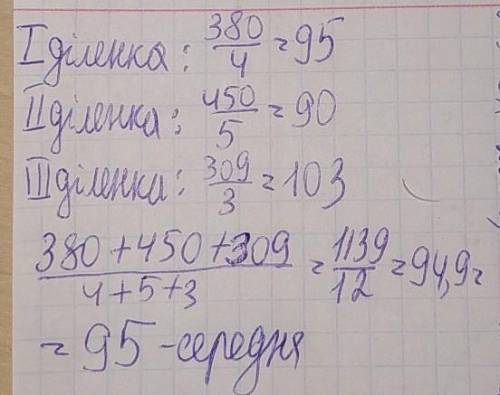 I діленка: 380/4 = 95
II діленка: 450/5 = 90
III діленка: 309/3 = 103
380+450+309/4+5+3 = 1139/12 = 94,9 =
= 95 - середня